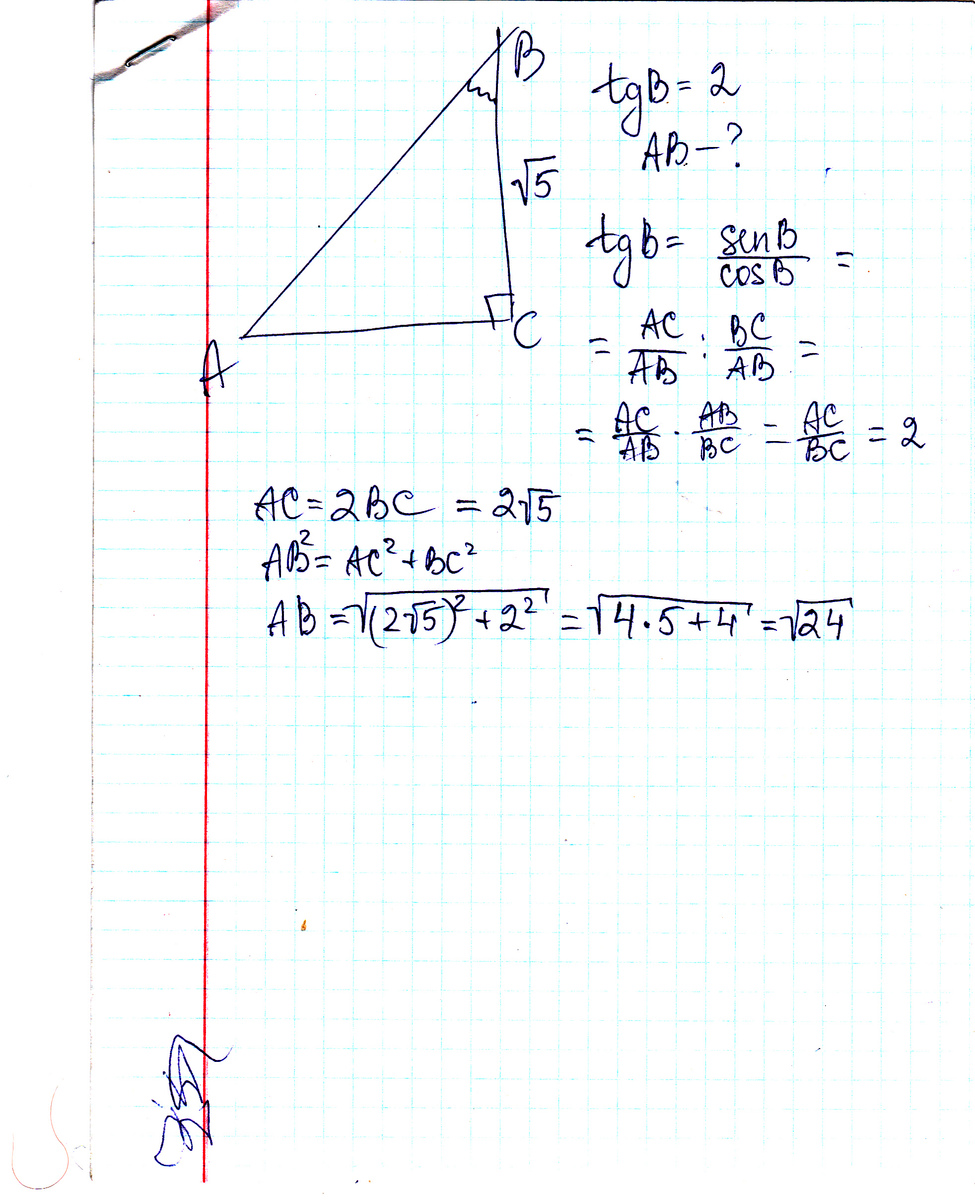 B
tgB = 2
AB - ?
√5
tgB = senB/cosB =
C
= AC/AB : BC/AB =
A
= AC/AB · AB/BC = AC/BC = 2
AC = 2BC = 2√5
AB² = AC² + BC²
AB = √((2√5)² + 2²) = √(4·5 + 4) = √24